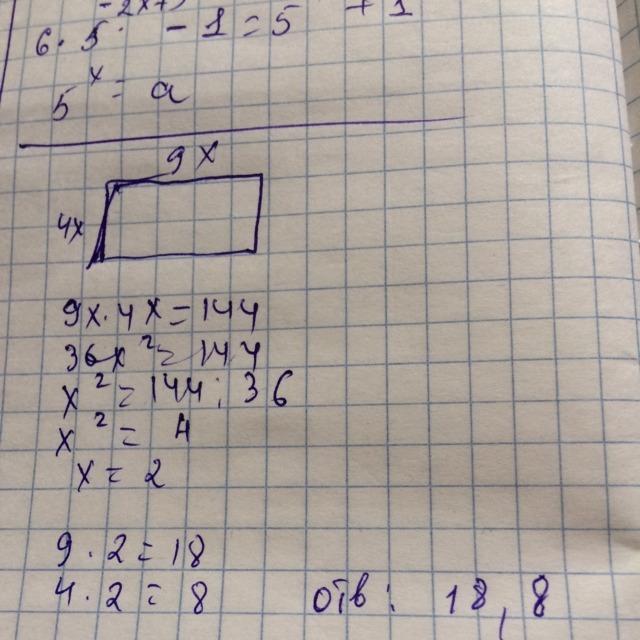 6 · 5 - 1 = 5 + 1
5ˣ = a
9x
4x
9x · 4x = 144
36x² = 144
x² = 144 : 36
x² = 4
x = 2
9 · 2 = 18
4 · 2 = 8
отв : 18, 8